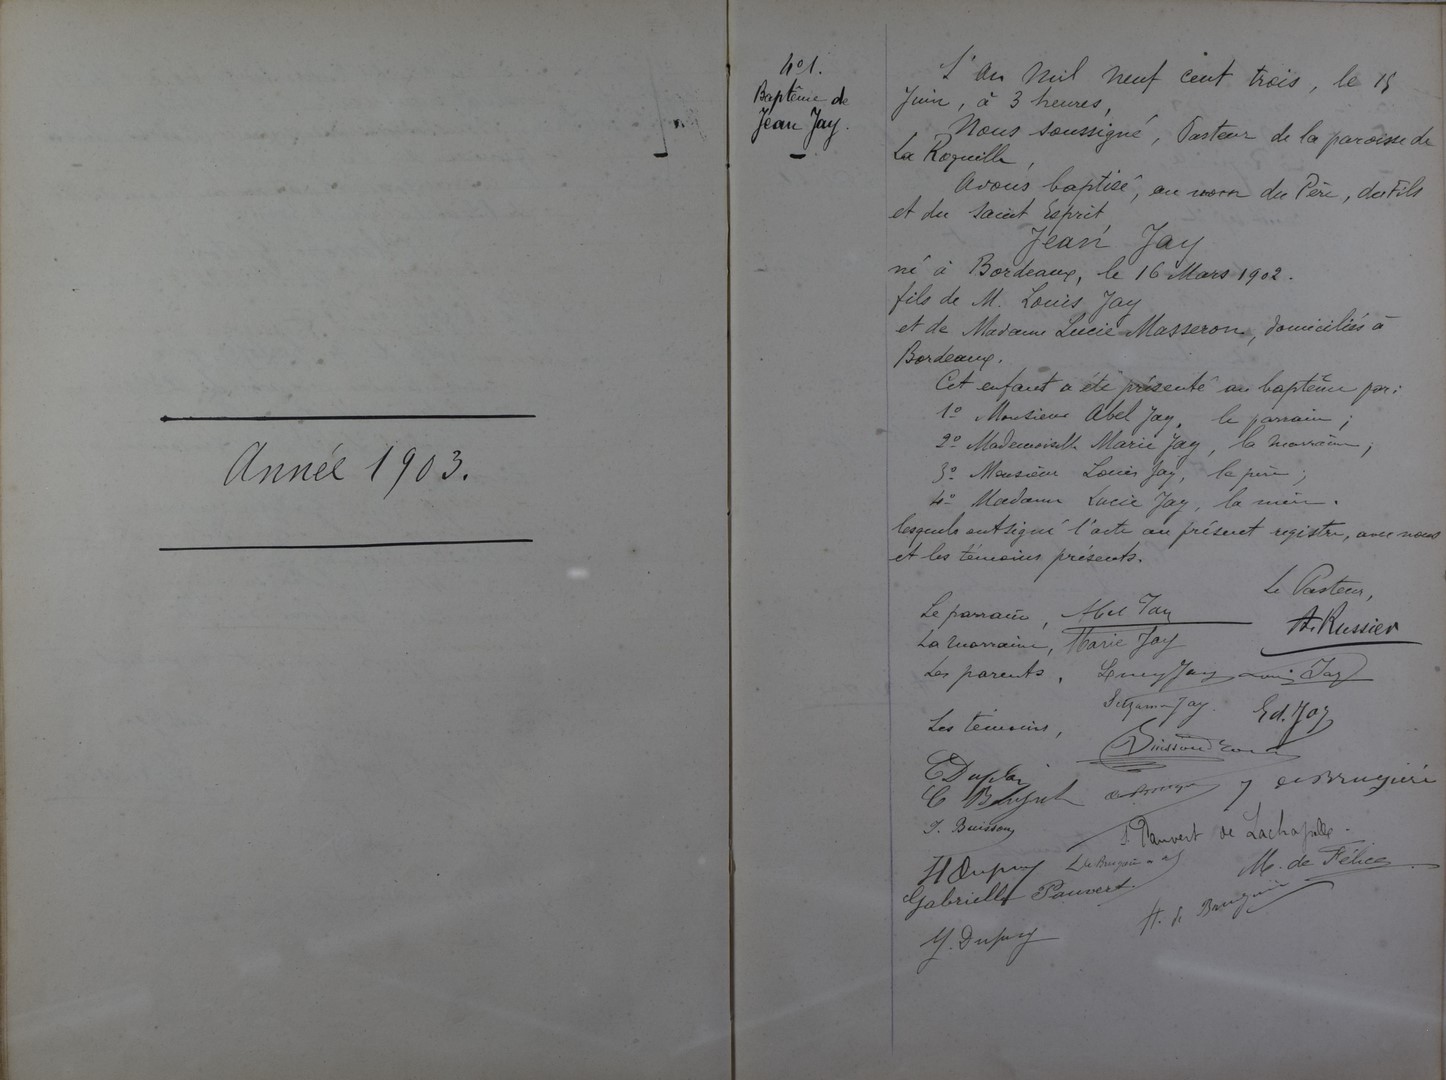 Année 1903.
N° 1.
Baptême de
Jean Jay.
L'an mil neuf cent trois, le 15
Juin, à 3 heures,
Nous soussigné, Pasteur de la paroisse de
La Roquille,
Avons baptisé, au nom du Père, du Fils
et du Saint Esprit
Jean Jay
né à Bordeaux, le 16 Mars 1902.
fils de M. Louis Jay
et de Madame Lucie Masseron, domiciliés à
Bordeaux.
Cet enfant a été présenté au baptême par:
1° Monsieur Abel Jay, le parrain;
2° Mademoiselle Marie Jay, la marraine;
3° Monsieur Louis Jay, le père;
4° Madame Lucie Jay, la mère.
lesquels ont signé l'acte au présent registre, avec nous
et les témoins présents.
Le Pasteur,
Le parrain, Abel Jay
Russier
La marraine, Marie Jay
Les parents, Jay Louis Jay
Jay Ed. Jay
Les témoins,
de Bruguière
J. Buisson
Pauvert de Lachapelle
H Dupuy
M. de Félice
Gabrielle Pauvert
H. de
Y. Dupuy